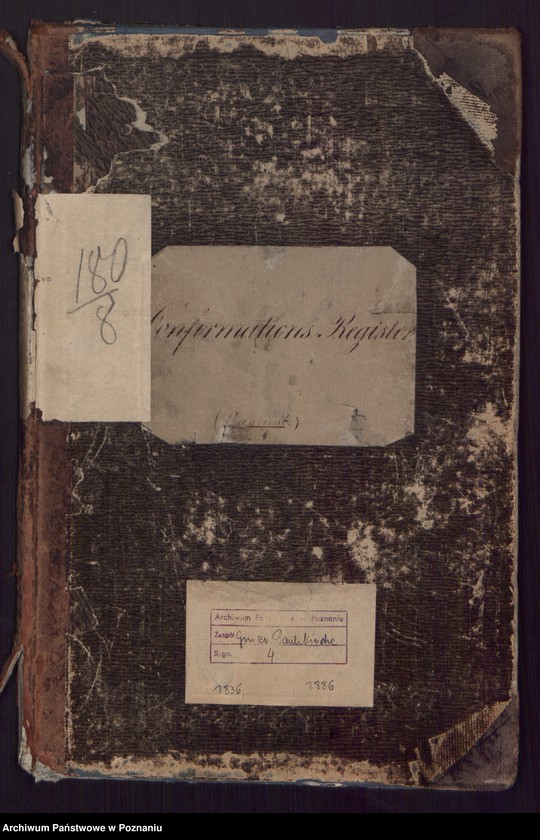 180
8
Confirmations Register
Archiwum Państwowe w Poznaniu
Zespół Gm. ew. Paulskirche
Sygn. 4
1836 1886
Archiwum Państwowe w Poznaniu